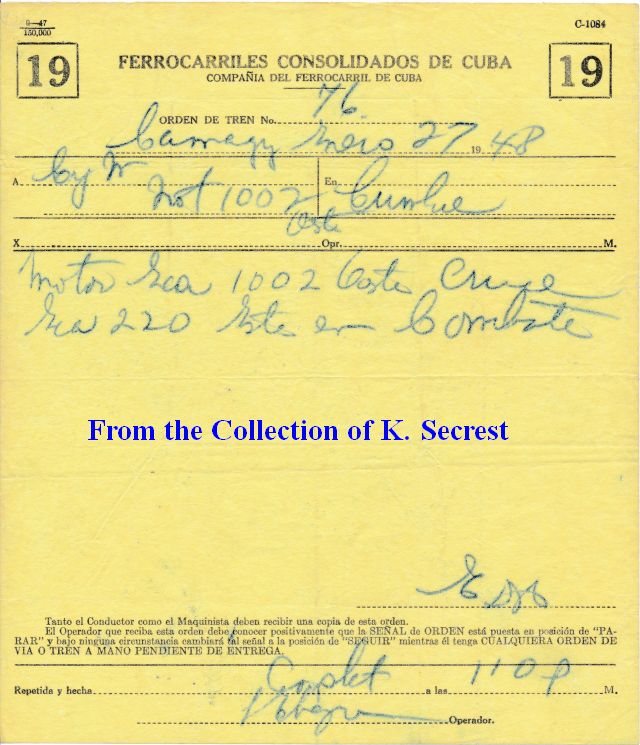 9-47
150,000
C-1084
19 FERROCARRILES CONSOLIDADOS DE CUBA 19
COMPAÑIA DEL FERROCARRIL DE CUBA
ORDEN DE TREN No. 76
Camagy Enero 27 1948
A C y M En Cumbre
Mot 1002
Oeste
X Opr. M.
Motor Eca 1002 Oeste Cruze
Eca 220 Este en Combate
From the Collection of K. Secrest
Tanto el Conductor como el Maquinista deben recibir una copia de esta orden.
El Operador que reciba esta orden debe conocer positivamente que la SEÑAL de ORDEN está puesta en posición de "PA-
RAR" y bajo ninguna circunstancia cambiará tal señal a la posición de "SEGUIR" mientras él tenga CUALQUIERA ORDEN DE
VIA O TREN A MANO PENDIENTE DE ENTREGA.
Repetida y hecha Complet a las 110 p M.
Operador.